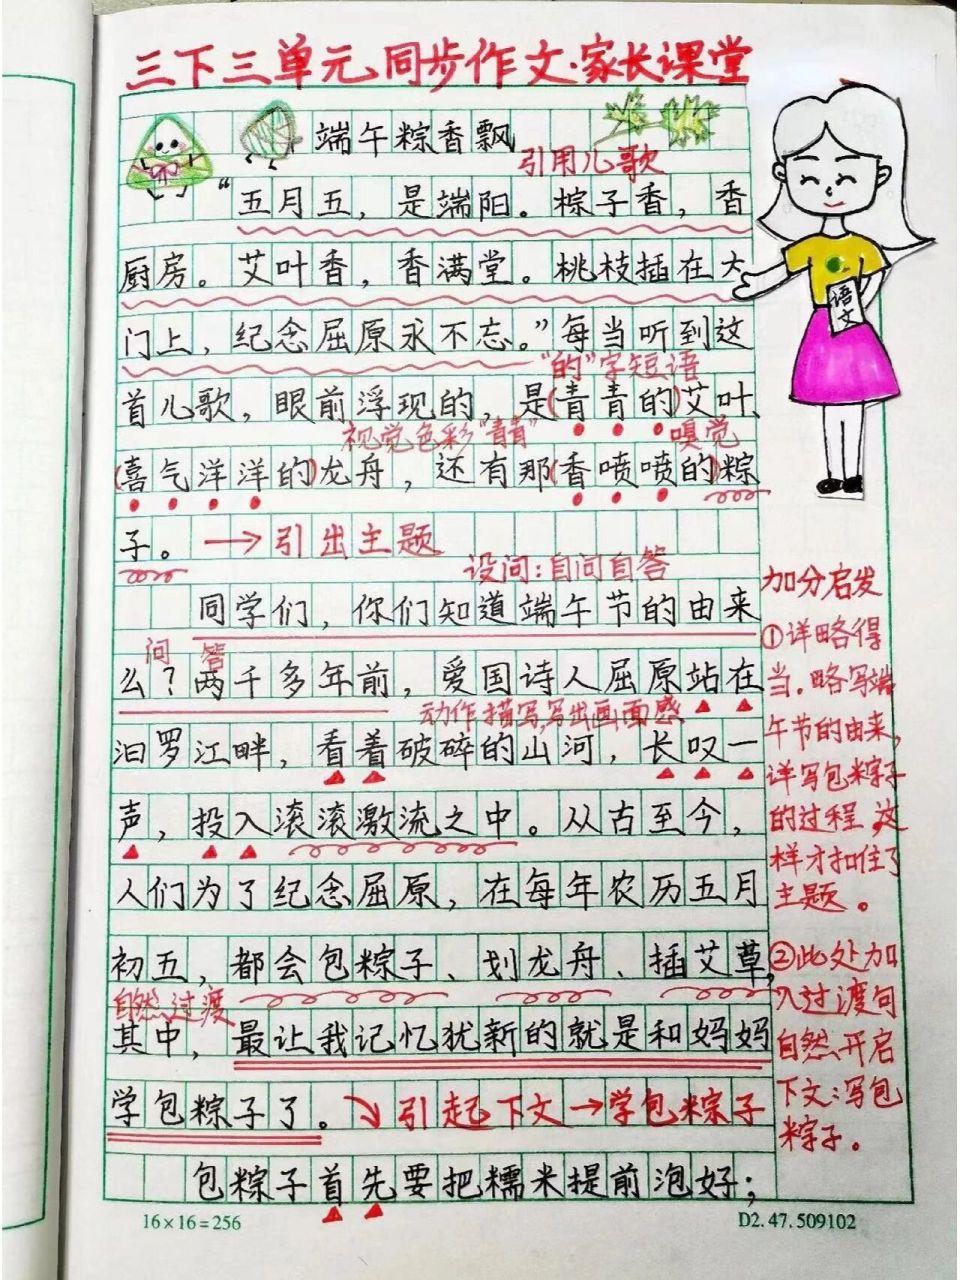 三下三单元同步作文·家长课堂
端午粽香飘
引用儿歌
“五月五，是端阳。粽子香，香
厨房。艾叶香，香满堂。桃枝插在大
语文
门上，纪念屈原永不忘。”每当听到这
“的”字短语
首儿歌，眼前浮现的，是(青青的)艾叶、
视觉色彩“青青” 嗅觉
(喜气洋洋的)龙舟，还有那(香喷喷的)粽
子。→引出主题
设问：自问自答
同学们，你们知道端午节的由来
问 答
么？两千多年前，爱国诗人屈原站在
动作描写，写出画面感
汨罗江畔，看着破碎的山河，长叹一
声，投入滚滚激流之中。从古至今，
人们为了纪念屈原，在每年农历五月
初五，都会包粽子、划龙舟、插艾草，
自然过渡
其中，最让我记忆犹新的就是和妈妈
学包粽子了。↘引起下文→学包粽子
包粽子首先要把糯米提前泡好；
加分启发
①详略得
当。略写端
午节的由来，
详写包粽子
的过程，这
样才扣住了
主题。
②此处加
入过渡句
自然、开启
下文：写包
粽子。
16×16=256
D2.47.509102